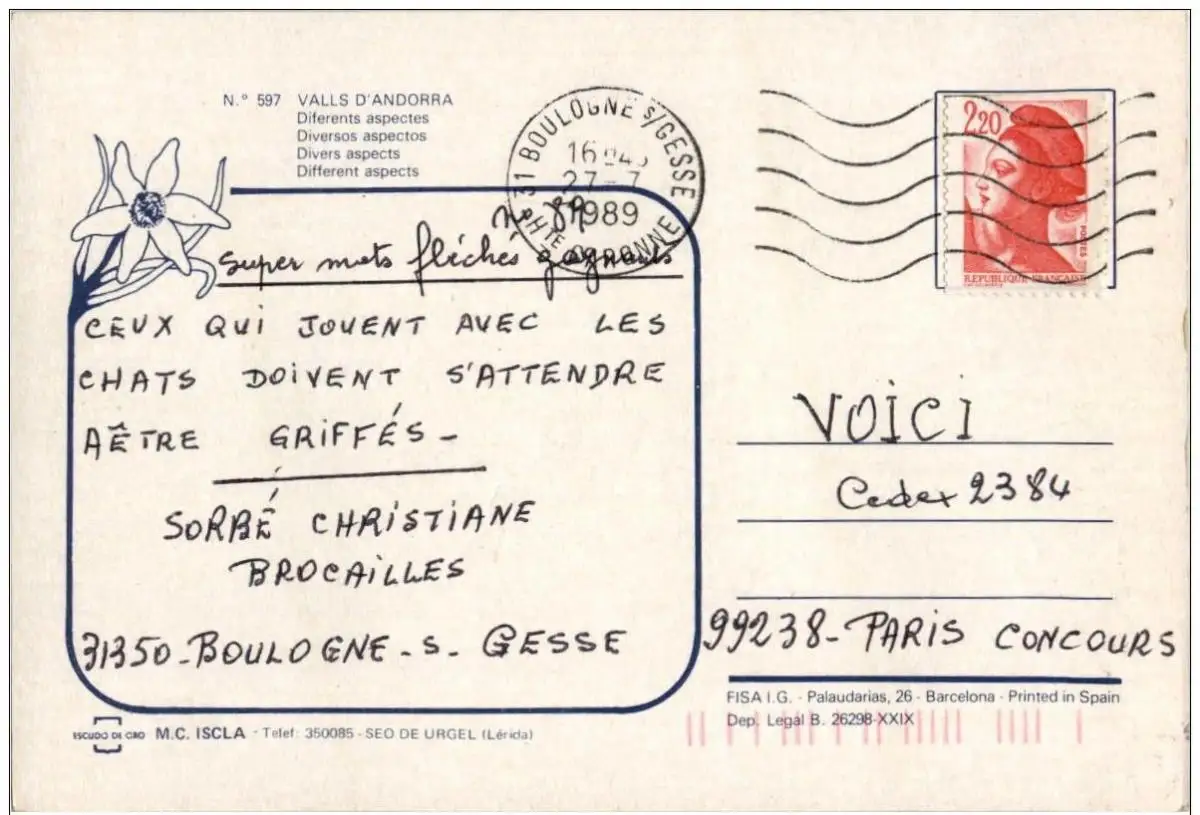 N.° 597 VALLS D'ANDORRA
Diferents aspectes
Diversos aspectos
Divers aspects
Different aspects
31 BOULOGNE S/GESSE
27-7
1989
HTE GARONNE
2,20
POSTES
REPUBLIQUE FRANÇAISE
No 89
Super mots fléchés gagnants
CEUX QUI JOUENT AVEC LES
CHATS DOIVENT S'ATTENDRE
A ÊTRE GRIFFÉS -
SORBÉ CHRISTIANE
BROCAILLES
31350-BOULOGNE-S- GESSE
VOICI
Cedex 2384
99238- PARIS CONCOURS
FISA I.G. - Palaudarias, 26 - Barcelona - Printed in Spain
Dep. Legál B. 26298-XXIX
ESCUDO DE ORO M.C. ISCLA - Telef: 350085 - SEO DE URGEL (Lérida)